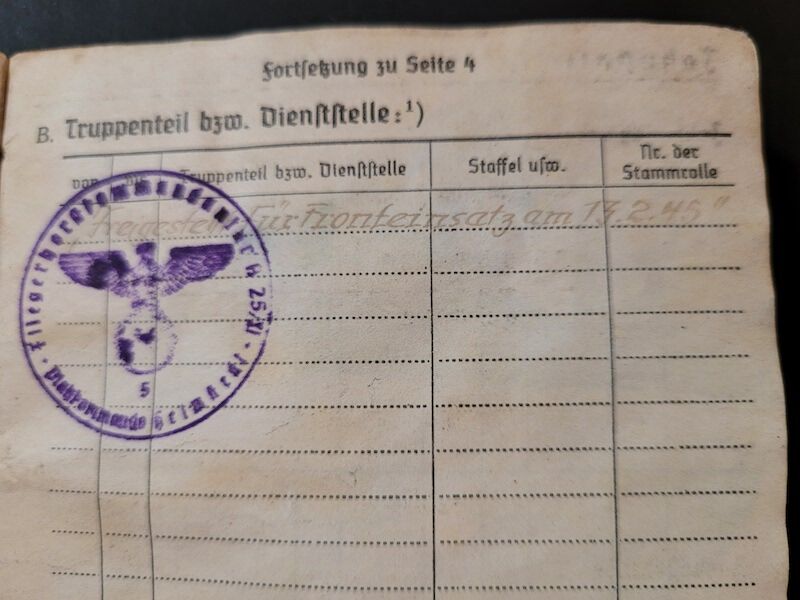 Fortsetzung zu Seite 4
B. Truppenteil bzw. Dienststelle:¹)
von bis Truppenteil bzw. Dienststelle Staffel usw. Nr. der Stammrolle
„Freigestellt für Fronteinsatz am 13.2.45"
Fliegerhorstkommandantur H 25/XI
Platzkommando Helmstedt
5